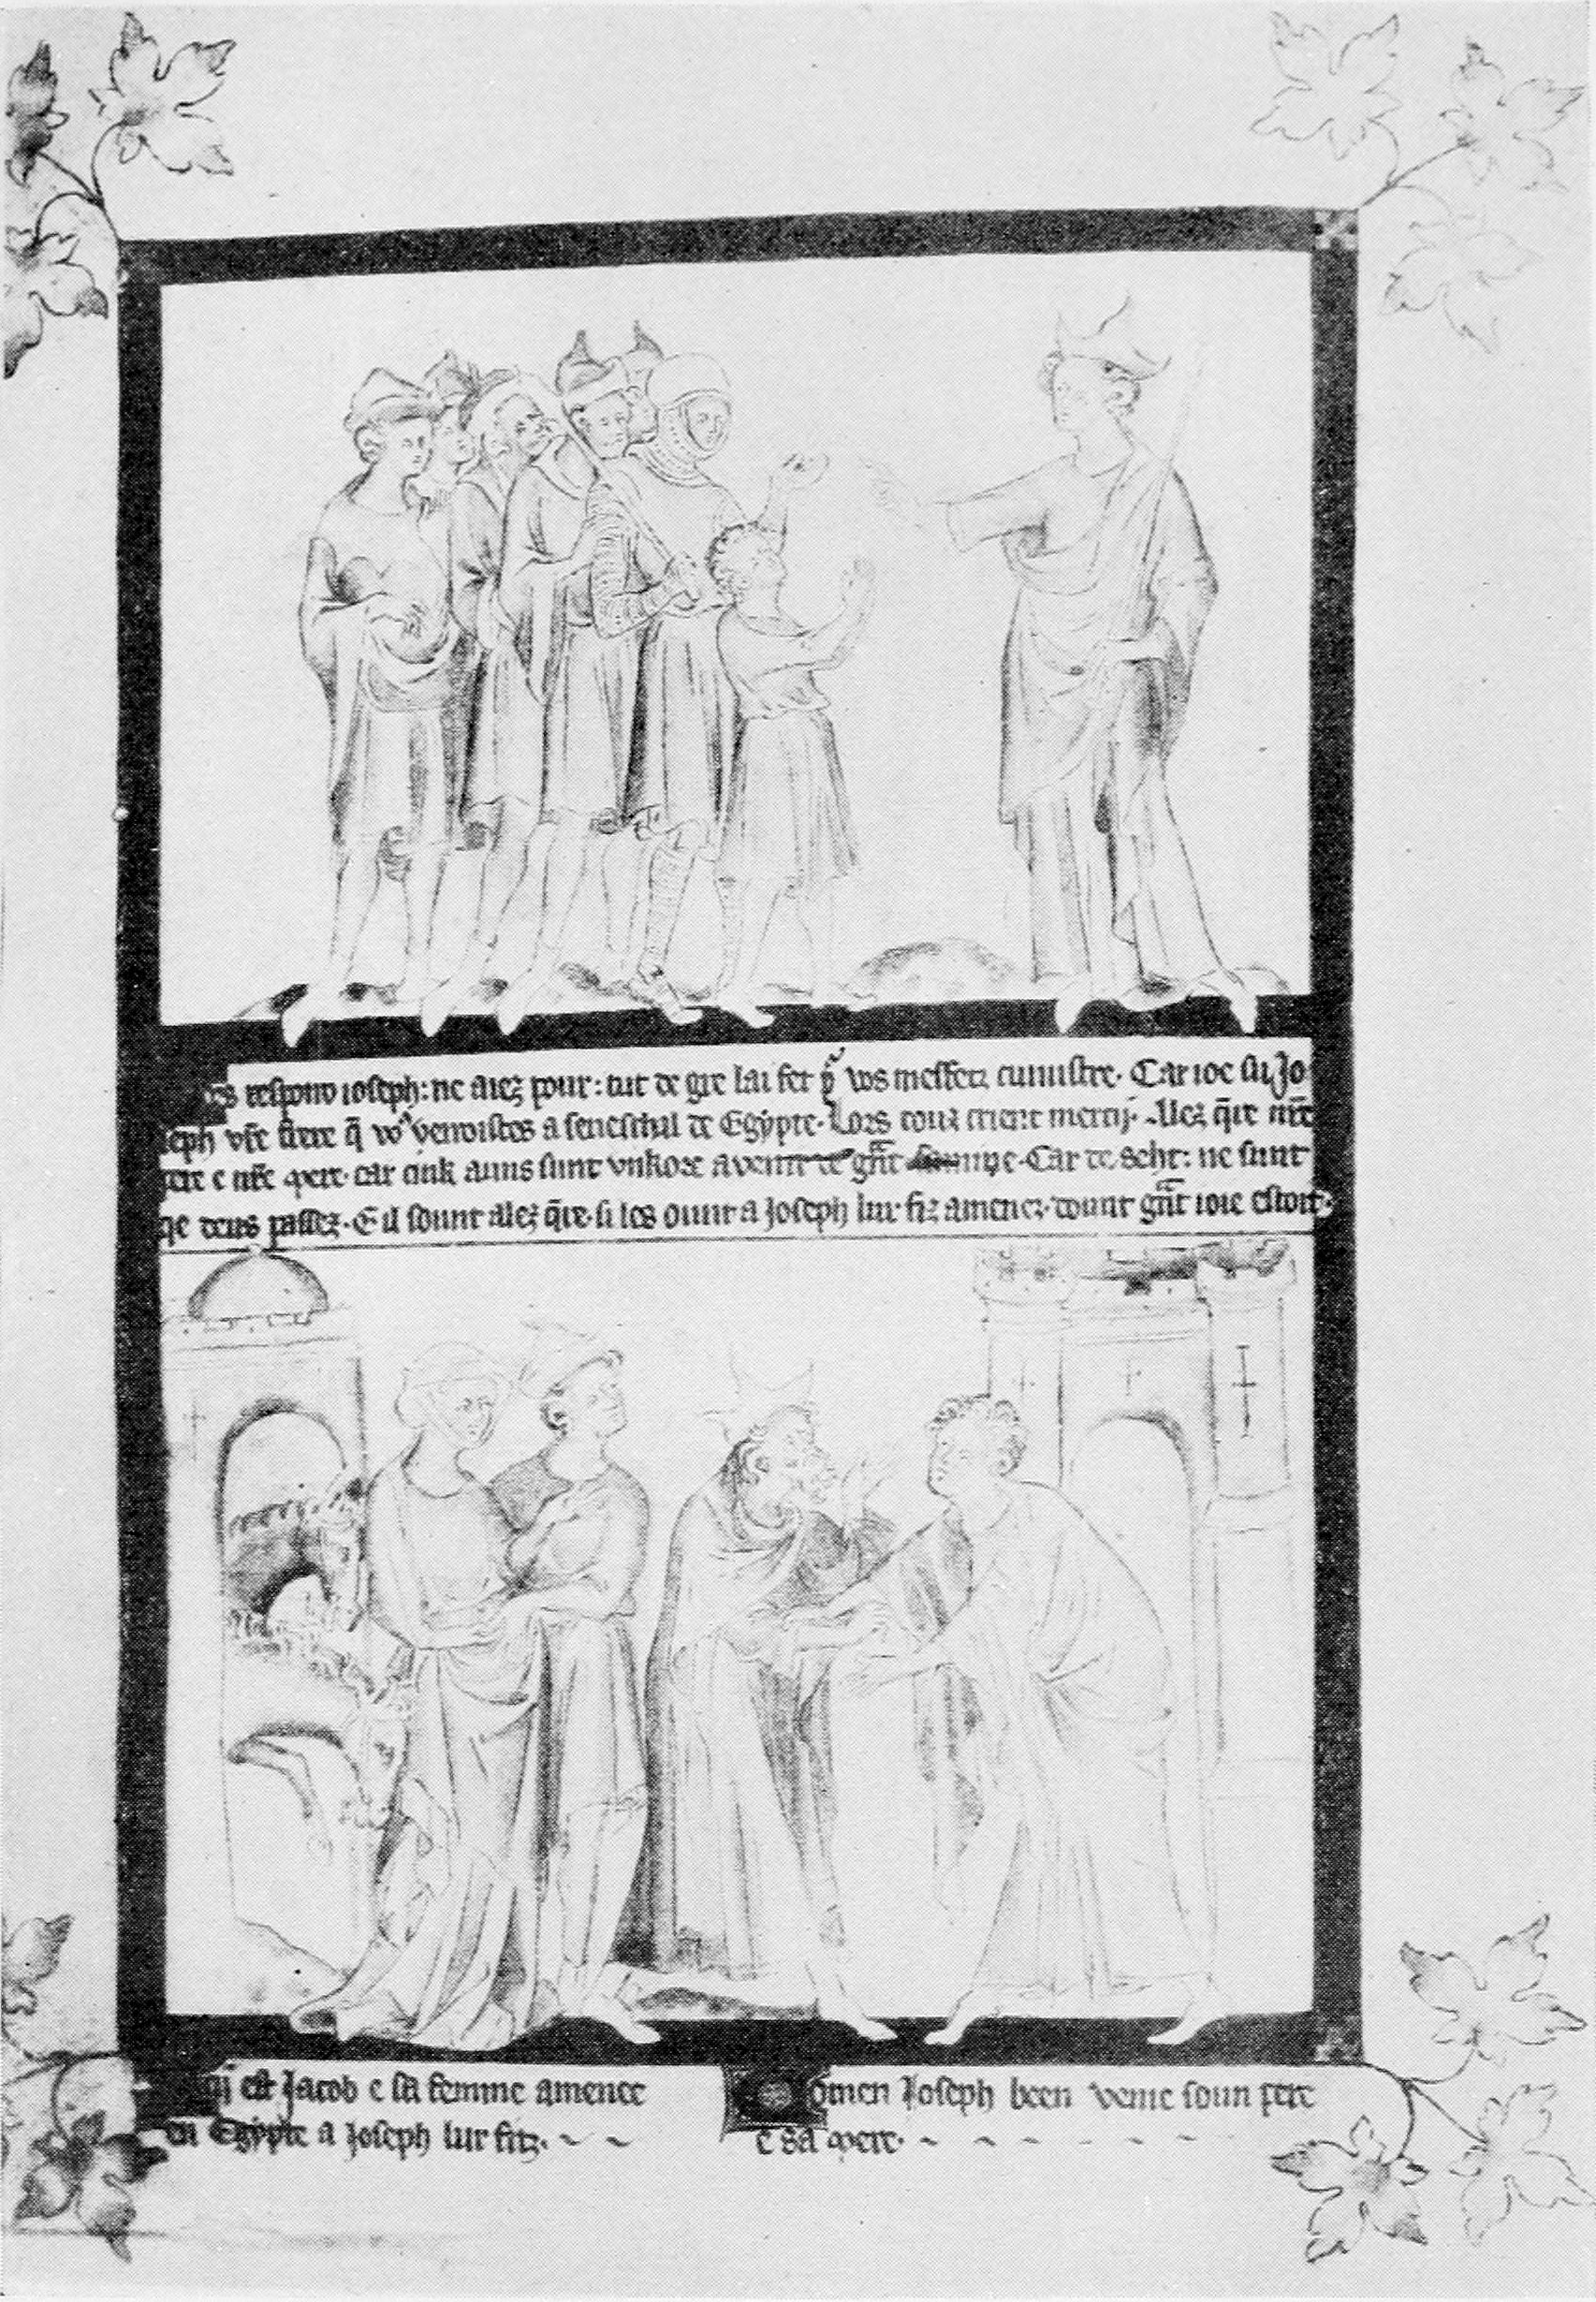 respond ioseph: ne aiez pour: tut de gre lai fet vos messerz cunustre. Car ioe su Jo
seph vr̃e frere q̃ voˢ vendistes a seneschal de Egypte. Lors touz crient mercij. Alez q̃re mr̃e
pere e mr̃e mere. car cink auns sunt vnkore a venir de gñt famine. Car de seht: ne sunt
qe deus passez. E il sount alez q̃re. si les ount a Joseph lur fiz amenez. dount gñt ioie estoit.
est Jacob e sa femme amenee
en Egypte a Joseph lur fitz.
omen Joseph been venie soun pere
e sa mere.